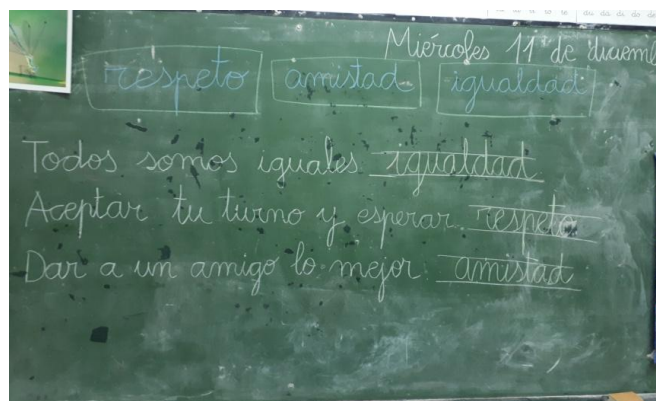 Miércoles 11 de diciemb
respeto amistad igualdad
Todos somos iguales igualdad
Aceptar tu turno y esperar respeto
Dar a un amigo lo mejor amistad